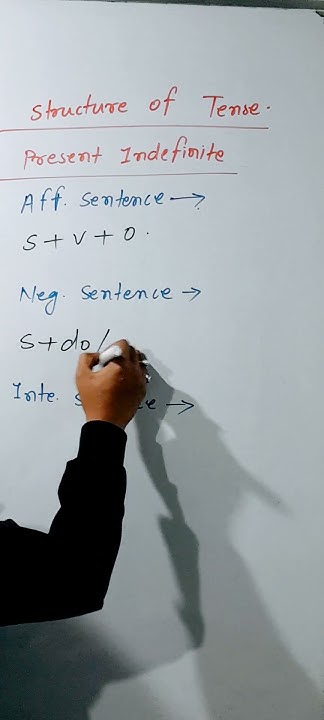 Structure of Tense.
Present Indefinite
Aff. Sentence →
S + V + O.
Neg. Sentence →
S + do /
Inte. →